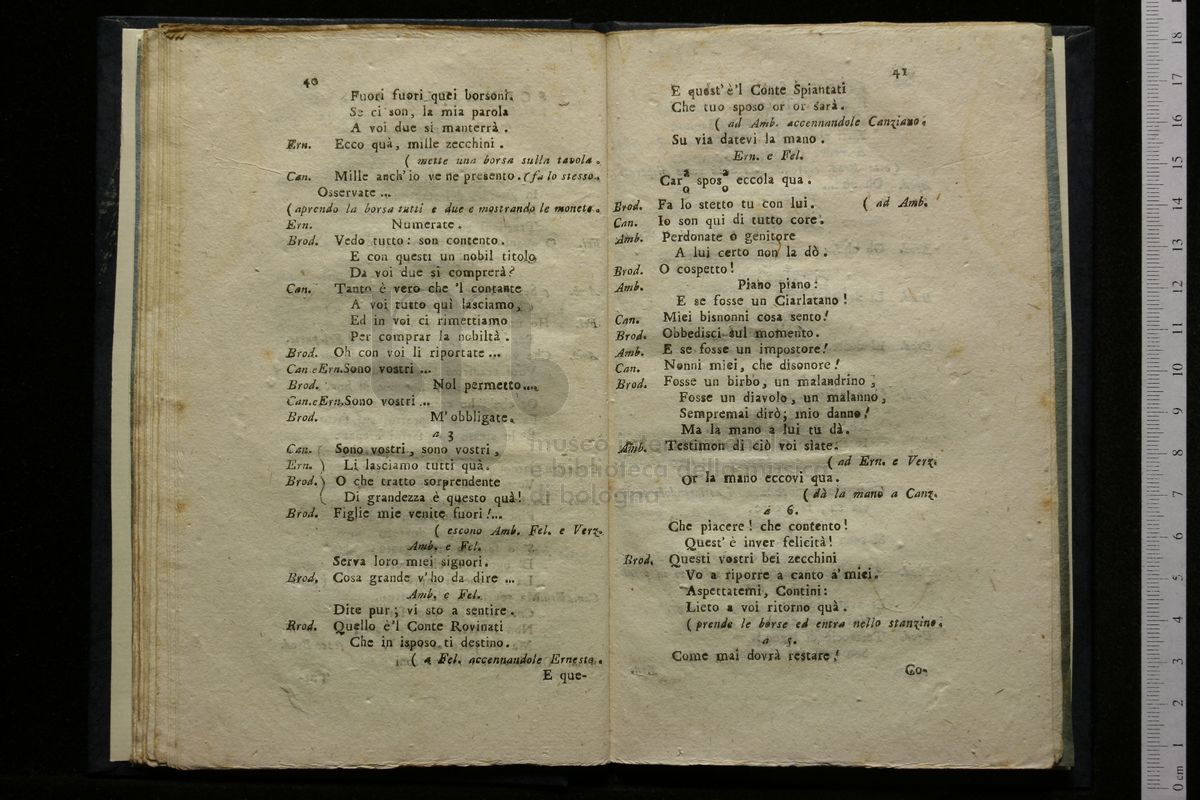 40
Fuori fuori quei borsoni.
Se ci son, la mia parola
A voi due si manterrà.
Ern. Ecco quà, mille zecchini.
( mette una borsa sulla tavola.
Can. Mille anch'io ve ne presento. (fa lo stesso.
Osservate ...
(aprendo la borsa tutti e due e mostrando le monete.
Ern. Numerate.
Brod. Vedo tutto: son contento.
E con questi un nobil titolo
Da voi due si comprerà?
Can. Tanto è vero che 'l contante
A voi tutto quì lasciamo,
Ed in voi ci rimettiamo
Per comprar la nobiltà.
Brod. Oh con voi li riportate ...
Can. e Ern. Sono vostri ...
Brod. Nol permetto....
Can. e Ern. Sono vostri ...
Brod. M'obbligate.
a 3
Can. ( Sono vostri, sono vostri,
Ern. ) Li lasciamo tutti quà.
Brod. ) O che tratto sorprendente
( Di grandezza è questo quà!
Brod. Figlie mie venite fuori!...
( escono Amb. Fel. e Verz.
Amb. e Fel.
Serva loro miei signori.
Brod. Cosa grande v'ho da dire ...
Amb. e Fel.
Dite pur; vi sto a sentire.
Brod. Quello è'l Conte Rovinati
Che in isposo ti destino.
( a Fel. accennandole Ernesto.
E que-
41
E quest'è'l Conte Spiantati
Che tuo sposo or or sarà.
( ad Amb. accennandole Canziano.
Su via datevi la mano.
Ern. e Fel.
Car a/o spos a/o eccola qua.
Brod. Fa lo stetto tu con lui. ( ad Amb.
Can. Io son qui di tutto core.
Amb. Perdonate o genitore
A lui certo non la dò.
Brod. O cospetto!
Amb. Piano piano:
E se fosse un Ciarlatano!
Can. Miei bisnonni cosa sento!
Brod. Obbedisci sul momento.
Amb. E se fosse un impostore!
Can. Nonni miei, che disonore!
Brod. Fosse un birbo, un malandrino,
Fosse un diavolo, un malanno,
Sempremai dirò; mio danno!
Ma la mano a lui tu dà.
Amb. Testimon di ciò voi siate.
( ad Ern. e Verz.
Or la mano eccovi qua.
( dà la mano a Canz.
a 6.
Che piacere! che contento!
Quest'è inver felicità!
Brod. Questi vostri bei zecchini
Vo a riporre a canto a' miei.
Aspettatemi, Contini:
Lieto a voi ritorno quà.
( prende le borse ed entra nello stanzino.
a 5.
Come mai dovrà restare!
Co-
museo
e biblioteca della musica
di bologna
0 cm 1 2 3 4 5 6 7 8 9 10 11 12 13 14 15 16 17 18